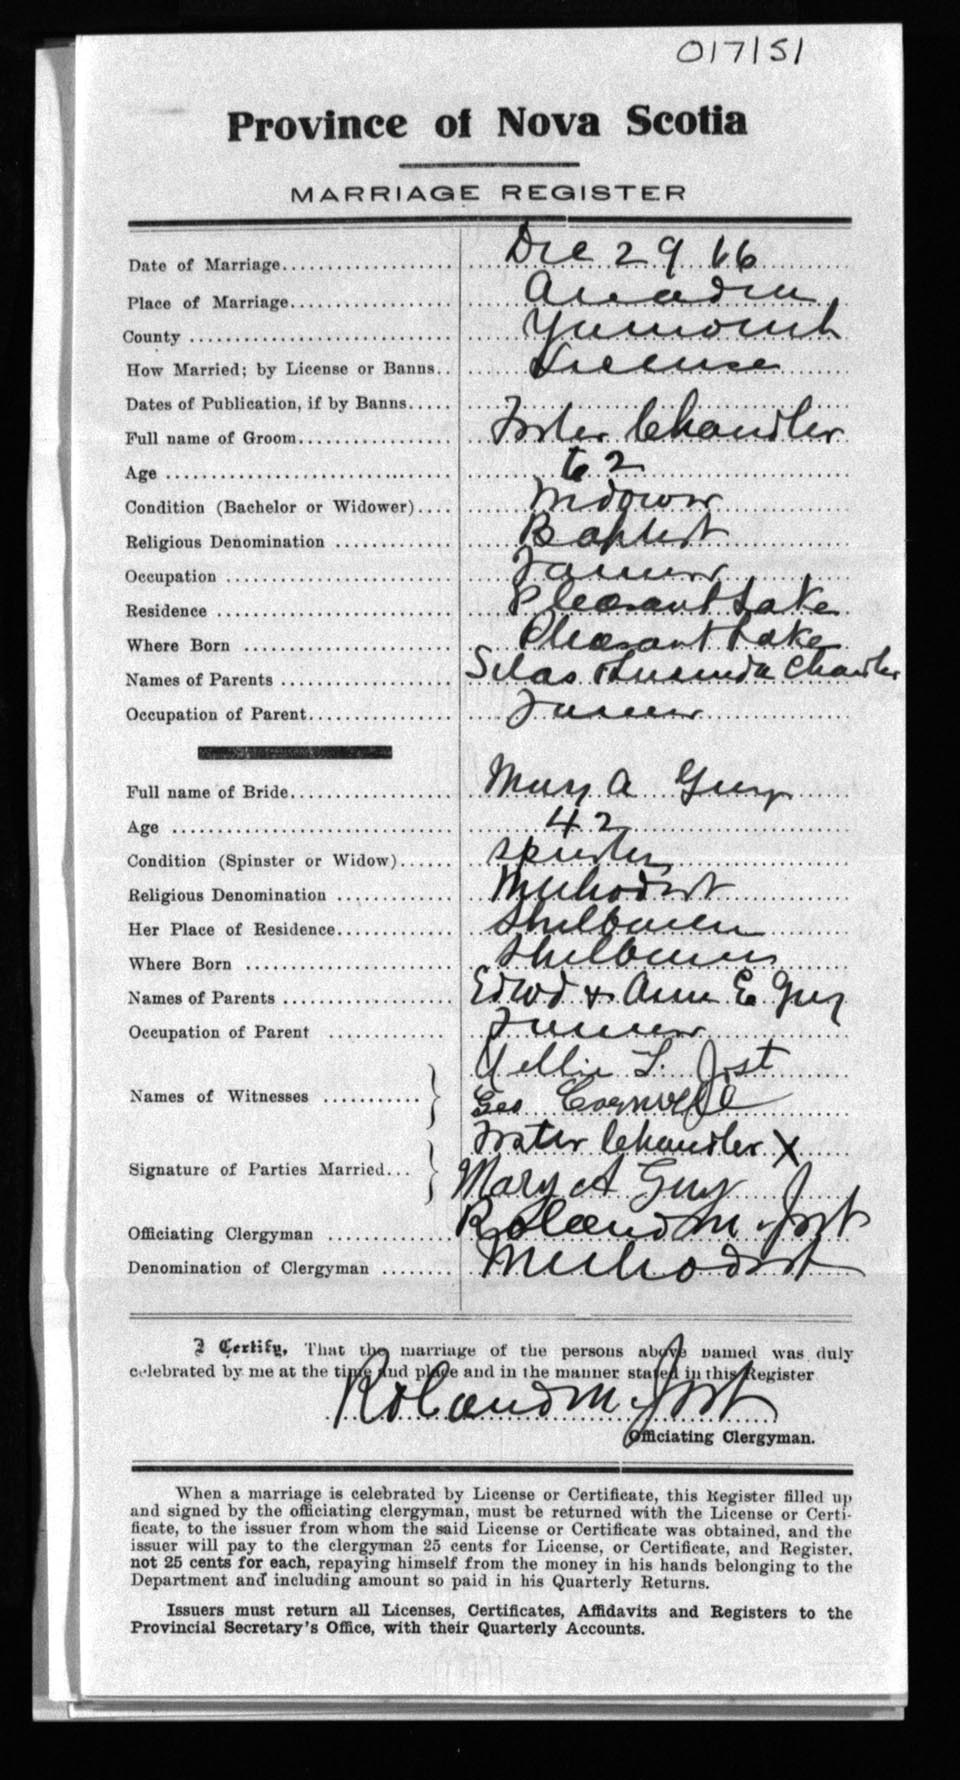 017151
Province of Nova Scotia
MARRIAGE REGISTER
Date of Marriage Dec 29 16
Place of Marriage Arcadia
County Yarmouth
How Married; by License or Banns License
Dates of Publication, if by Banns
Full name of Groom Foster Chandler
Age 62
Condition (Bachelor or Widower) Widower
Religious Denomination Baptist
Occupation Farmer
Residence Pleasant Lake
Where Born Pleasant Lake
Names of Parents Silas & Lucinda Chandler
Occupation of Parent Farmer
Full name of Bride Mary A Guy
Age 42
Condition (Spinster or Widow) Spinster
Religious Denomination Methodist
Her Place of Residence Shelburne
Where Born Shelburne
Names of Parents Edwd & Ann E Guy
Occupation of Parent Farmer
Nellie L. Jost
Names of Witnesses Geo
Foster Chandler X
Signature of Parties Married Mary A Guy
Officiating Clergyman Roland M. Jost
Denomination of Clergyman Methodist
I Certify, That the marriage of the persons above named was duly
celebrated by me at the time and place and in the manner stated in this Register
Roland M. Jost
Officiating Clergyman.
When a marriage is celebrated by License or Certificate, this Register filled up
and signed by the officiating clergyman, must be returned with the License or Certi-
ficate, to the issuer from whom the said License or Certificate was obtained, and the
issuer will pay to the clergyman 25 cents for License, or Certificate, and Register,
not 25 cents for each, repaying himself from the money in his hands belonging to the
Department and including amount so paid in his Quarterly Returns.
Issuers must return all Licenses, Certificates, Affidavits and Registers to the
Provincial Secretary's Office, with their Quarterly Accounts.